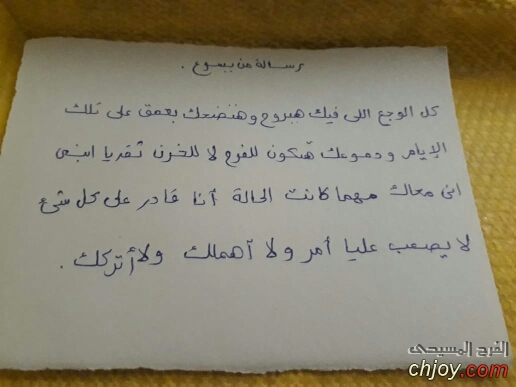 رسالة من يسوع .
كل الوجع اللى فيك هيروح وهتضحك بعمق على تلك
الإيام ودموعك هتكون للفرح لا للحزن
انى معاك مهما كانت الحالة أنا قادر على كل شئ
لا يصعب عليا أمر ولا آهملك ولا أتركك .
الفرح المسيحى
chjoy.com